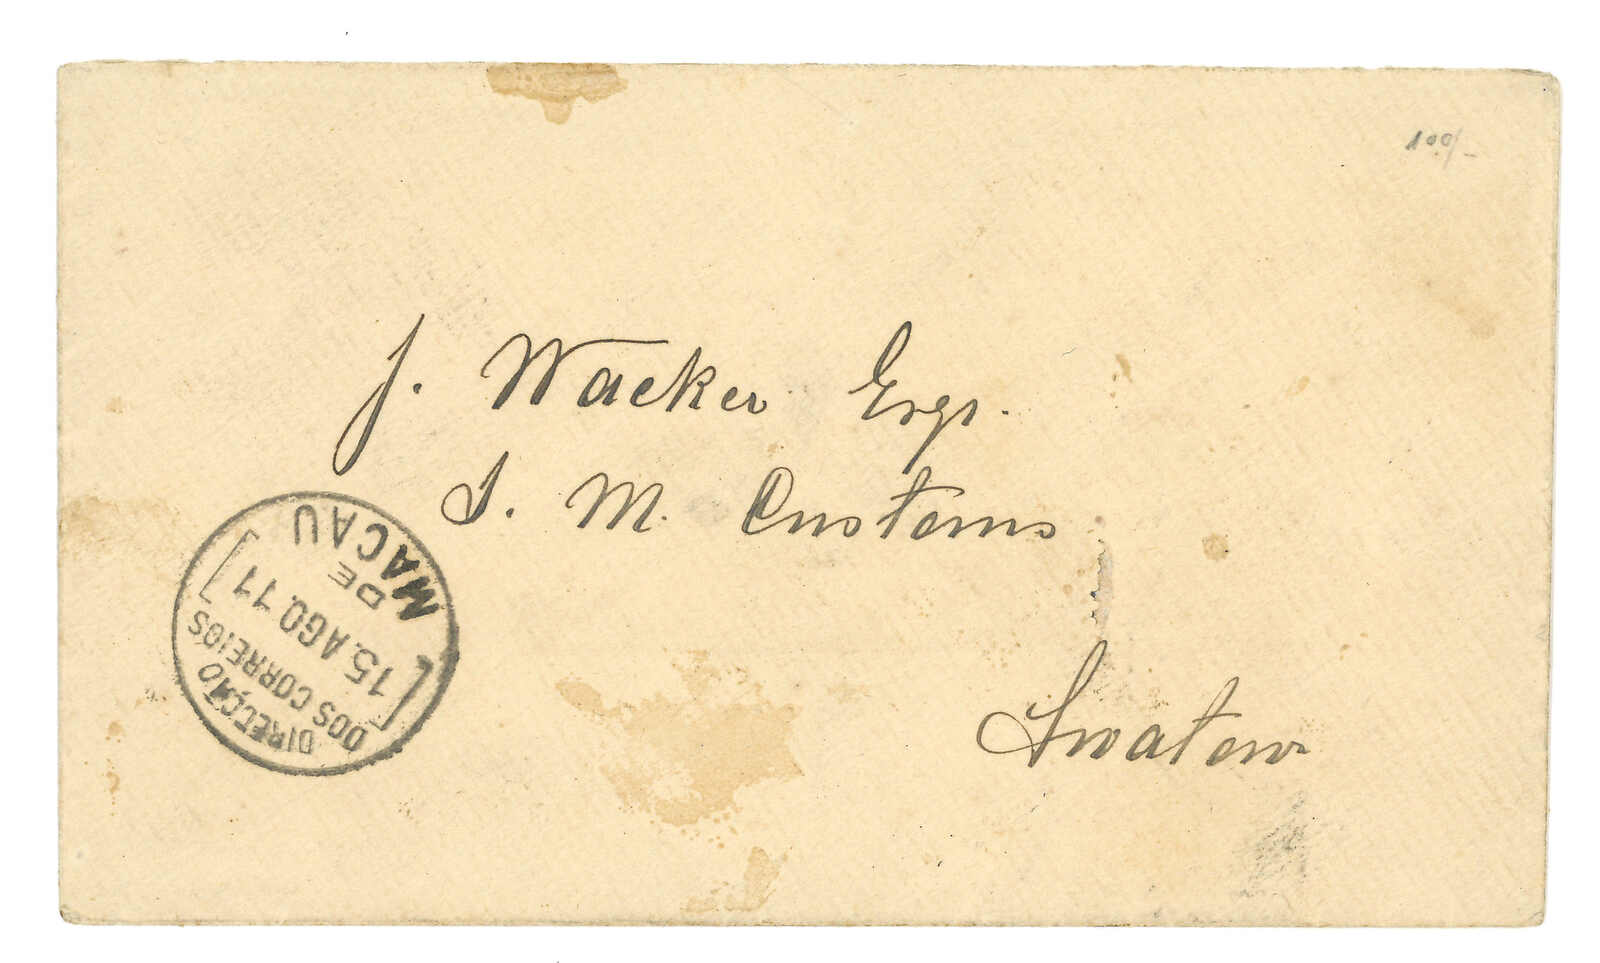 100/-
J. Wacker Esqr.
I. M. Customs
Swatow
DIRECÇÃO
DOS CORREIOS
15. AGO. 11
DE
MACAU